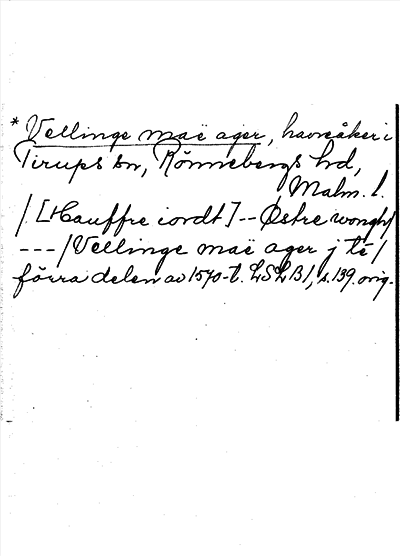 * Vellinge maë ager, havreåker i
Tirups sn, Rönnebergs hd,
Malm. l.
/ [Hauffre iordt] -- Østre wongh /
--- / Vellinge maë ager j të /
förra delen av 1570-t. LSLB 1, s. 139. orig.